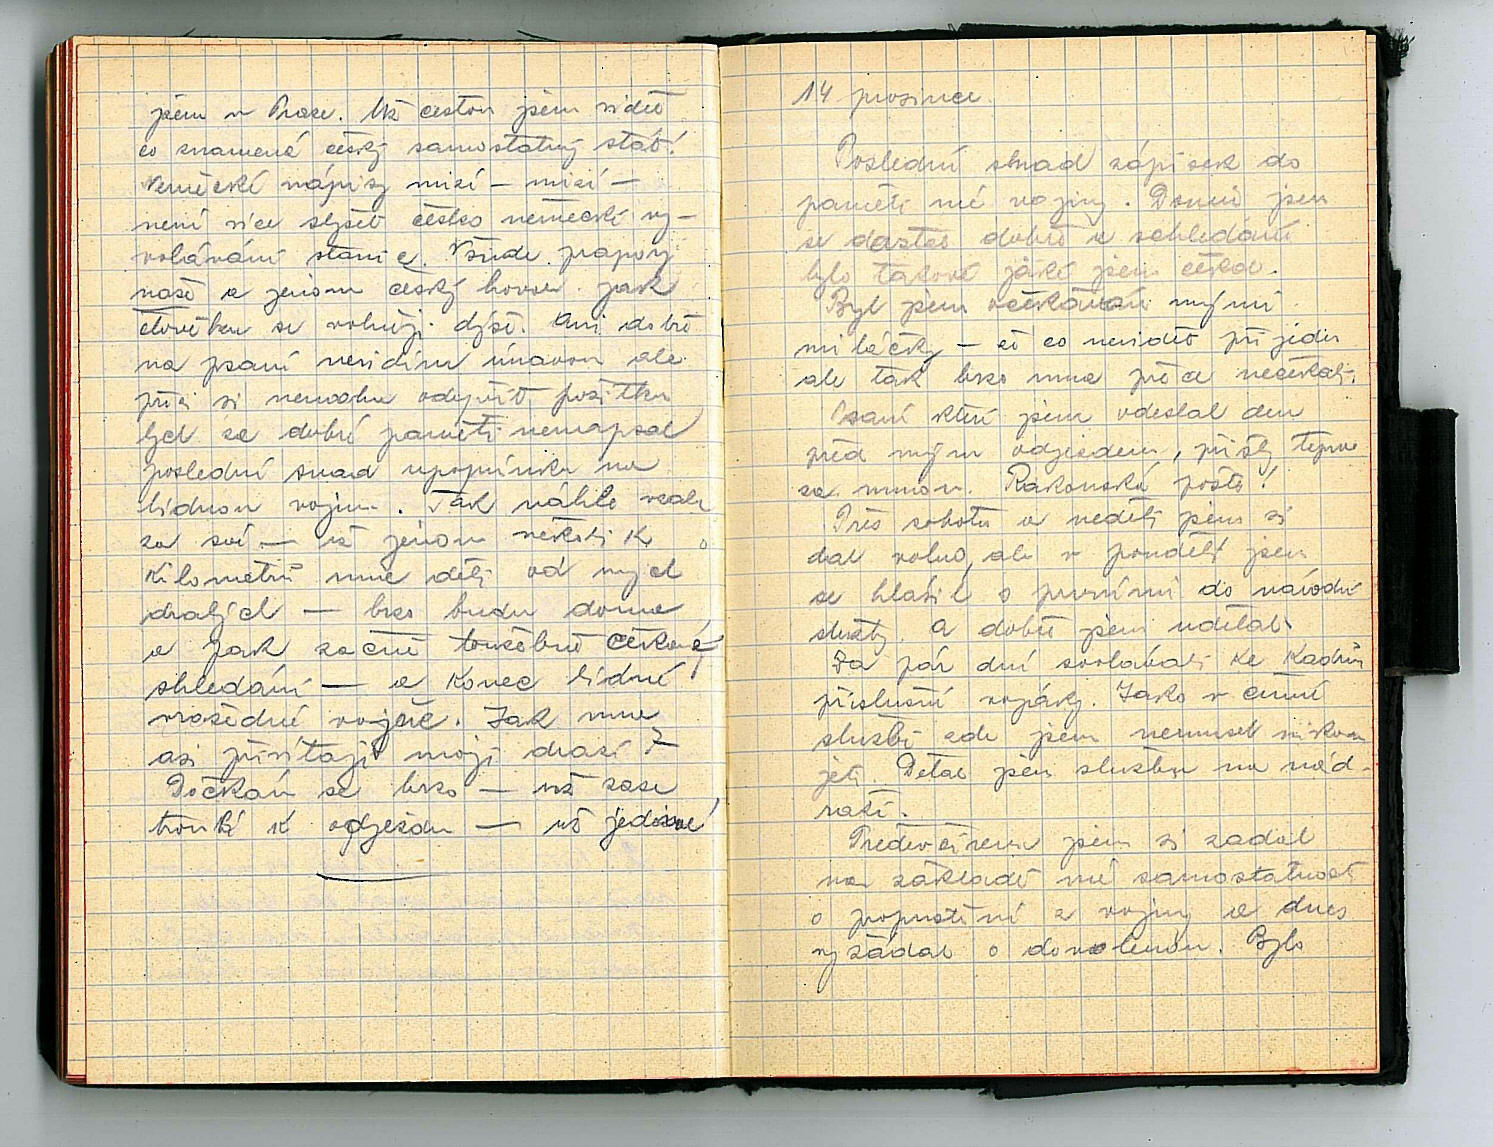 jsem v Praze. Už cestou jsem viděl
co znamená český samostatný stát!
Německé nápisy mizí — mizí —
není více slyšeti česko německé vy-
volávání stanic. Všude prapory
naše a jenom český hovor. Jak
člověku se volněji dýše. Ani dobře
na psaní nevidím únavou ale
přec si nemohu odepříti požitku
bych za dobré paměti nenapsal
poslední snad upomínku na
bídnou vojnu. Tak náhle vzala
za své — už jenom několik
kilometrů mne dělí od mých
drahých — brzo budu doma
a pak začne toužebně čekané
shledání — a konec bídné
vražedné vojně. Jak mne
asi přivítají moji drazí?
Dočkám se brzo — už zase
troubí k odjezdu — už jedeme!
14 prosince.
Poslední snad zápisek do
paměti mé vojny. Domů jsem
se dostal dobře a shledání
bylo takové jaké jsem čekal.
Byl jsem očekáván mými
miláčky — ač co nevidět přijedu
ale tak brzo mne přece nečekali.
Psaní které jsem odeslal den
před mým odjezdem, přišly teprve
za mnou. Rakouská pošta!
Přes sobotu a neděli jsem si
dal volno, ale v pondělí jsem
se hlásil o prvními do národní
služby. A dobře jsem udělal.
Za pár dní svolávali ke kádrům
příslušné vojáky. Jako v činné
službě zde jsem nemusel nikam
jeti. Dělal jsem službu na nád-
raží.
Předevčírem jsem si zadal
na základě mé samostatnosti
o propuštění z vojny a dnes
vyžádal o dovolenou. Bylo